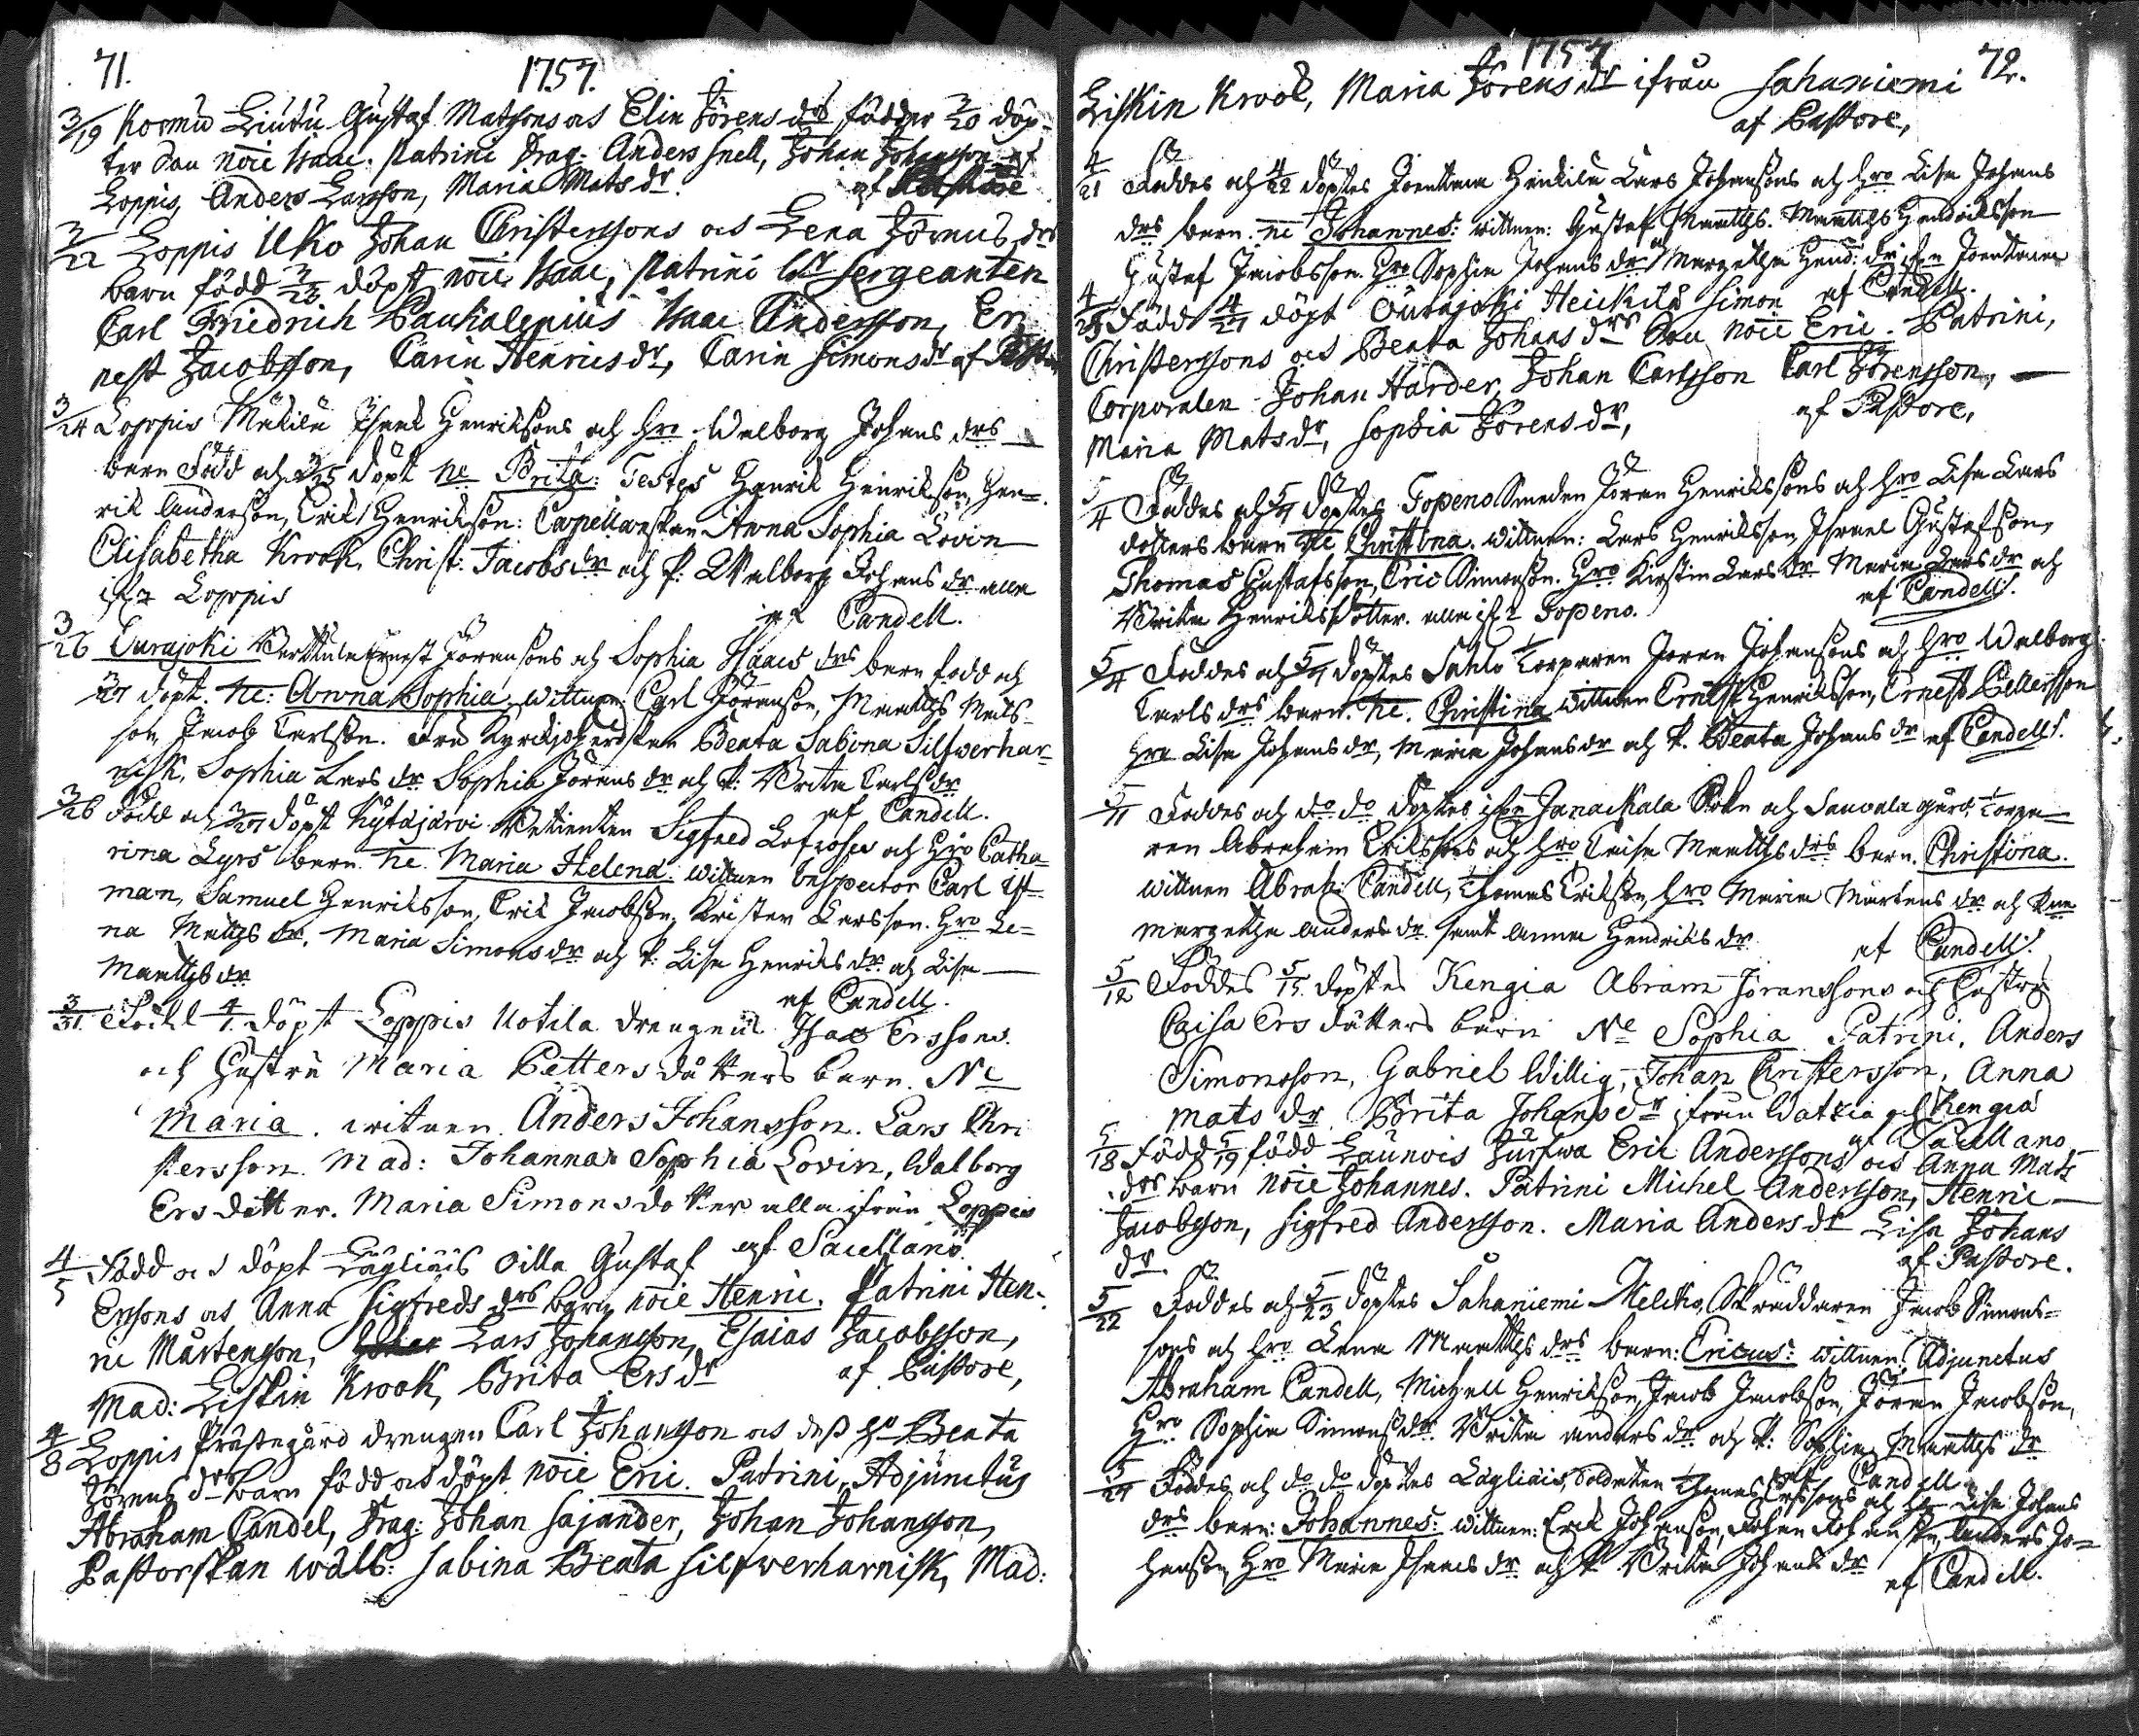 71.
1757.
3/19 Kormu Liutu Gustaf Matssons och Elin Jörens drs födder 3/20 döp-
ter Son noie Isaac. Patrini Drag. Anders Snell, Johan Johansson af
Loppis, Anders Larsson, Maria Mats dr. af Pastore
3/22 Loppis Ilko Johan Christerssons och Lena Jörens drs
barn född 3/23 döpt noie Isaac, Patrini Sergeanten
Carl Friedrich Paukalenius Isaac Andersson, Er-
nest Jacobsson, Carin Henrics dr, Carin Simons dr af Past
3/24 Loppis Mäkilä Israel Henrichsons och Hro Walborg Johans drs
barn Född och 3/25 döpt ne Brita: Testes Henrik Henrikson, Hen=
rik Anderson, Erik Henrikson: Capellanskan Anna Sophia Lovin
Elisabetha Krook, Christ: Jacobs dr och P: Walborg Johans dr alla
ifrn Loppis af Candell.
3/26 Eurajoki Ernest Jöransons och Sophia Isaacs drs barn född och
3/27 döpt. ne: Anna Sophia. wittnen Carl Jöranson, Matths Mats-
son Jacob Carlson. Fru Beata Sabina Silfwerhar-
nisk, Sophia Lars dr Sophia Jörens dr och P: Brita Carls dr
af Candell.
3/26 Född och 3/27 döpt Kytäjärvi Sigfred Lofrosen och Hro Catha-
rina Lyrs barn ne Maria Helena. wittnen Inspector Carl Ist-
man, Samuel Henriksson, Erik Jacobson, Krister Larsson. Hro Le=
na Matths dr, Maria Simons dr och P: Lisa Henriks dr och Lisa
Matths dr
af Candell.
3/31. Född 4/1. döpt Loppis Kotila drengens Isac Erssons.
och Hustru Maria Petters dätters barn. Ne
Maria. witnen. Anders Johansson. Lars Chri
stersson. Mad: Johanna Sophia Lovin, Walborg
Ers dotter. Maria Simons dotter alla ifrån Loppis
af Sacellano.
4/5 Född och döpt Lägliäis Oilla Gustaf
Erssons och Anna Sigfreds drs barn noie Henric. Patrini Hen-
ric Mårtenson, Lars Johansson, Esaias Jacobsson,
Mad: Liskin Krook, Brita Ers dr af Pastore,
4/8 Loppis Prästegård drengen Carl Johansson och dess Ho Beata
Jörens drs barn född och döpt noie Eric. Patrini, Adjunctus
Abraham Candel, Drag: Johan Sajander, Johan Johansson,
Pastorskan wälb: Sabina Beata Silfwerharnisk, Mad:
1757
72.
Liskin Krook, Maria Jörens dr ifrån Sahaniemi
af Pastore,
4/21 Föddes och 4/22 döptes Joentaca Heikilä Lars Johansons och Hro Lisa Johans
drs barn. ne Johannes: wittnen: Gustaf Matths. Matths Hendriksson
Gustaf Jacobsson. Hro Sophia Johans dr Margetha Hend: dr ifrn Joentaca
af Candell.
4/25 Född 4/27 döpt Ourajoki Heickilä Simon
Christerssons och Beata Johans drs Son noie Eric. Patrini,
Corporalen Johan Harder, Johan Carlsson Carl Jörensson,
Maria Mats dr, Sophia Jörens dr, af Pastore,
5/4 Föddes och döptes Topeno Smeden Jöran Henrikssons och Hro Lisa Lars
dotters barn ne Christina. wittnen: Lars Henriksson, Israel Gustafson,
Thomas Gustafsson, Eric Simonson. Hro Kirstin Lars dr Maria Lars dr och
Brita Henriks dotter. alla ifrn Topeno. af Candell.
5/4 Föddes och döptes Sahlo Torparen Jöran Johansons och Hro Walborg
Carls drs barn. ne. Christina wittnen Ernest Henriksson, Ernest Pettersson
Hro Lisa Johans dr, Maria Johans dr och P. Beata Johans dr af Candell.
5/11 Föddes och do do döptes ifrn Janackala Sokn och Sauvala gård, Torpa
ren Abraham Erikssons och Hro Caisa Matths drs barn. Christina.
wittnen Abrah: Candell, Thomas Erikson, Hro Maria Mårtens dr och
Margetha Anders dr samt Anna Hendriks dr
af Candell.
5/12 Föddes 5/15. döptes Kengia Abram Jöranssons och Hustru
Caisa Ers dätters barn Ne Sophia Patrini. Anders
Simonsson, Gabriel Willig, Johan Christersson, Anna
Mats dr Brita Johans dr ifrån Watzia och Kengia
af Sacellano
5/18 Född 5/19 född Launois Eric Anderssons och Anna Mats
drs barn noie Johannes. Patrini Michel Andersson, Henric
Jacobsson, Sigfred Andersson. Maria Anders dr Lisa Johans
dr. af Pastore.
5/22 Föddes och 5/23 döptes Sahaniemi Melcko, Skräddaren Jacob Simons=
sons och Hro Lena Matths drs barn: Ericus: wittnen: Adjunctus
Abraham Candell, Michell Henrikson, Jacob Jacobson, Jöran Jacobson,
Hro Sophia Simons dr Brita Anders dr och P: Sophia Matths dr
af Candell
5/24 Föddes och do do döptes Lägliäis, Soldaten Thomas Erssons och Hro Lisa Johans
drs barn: Johannes: wittnen: Erik Johanson, Johan Johansson, Anders Jo=
hanson, Hro Maria Isaacs dr och P Brita Johans dr
af Candell.